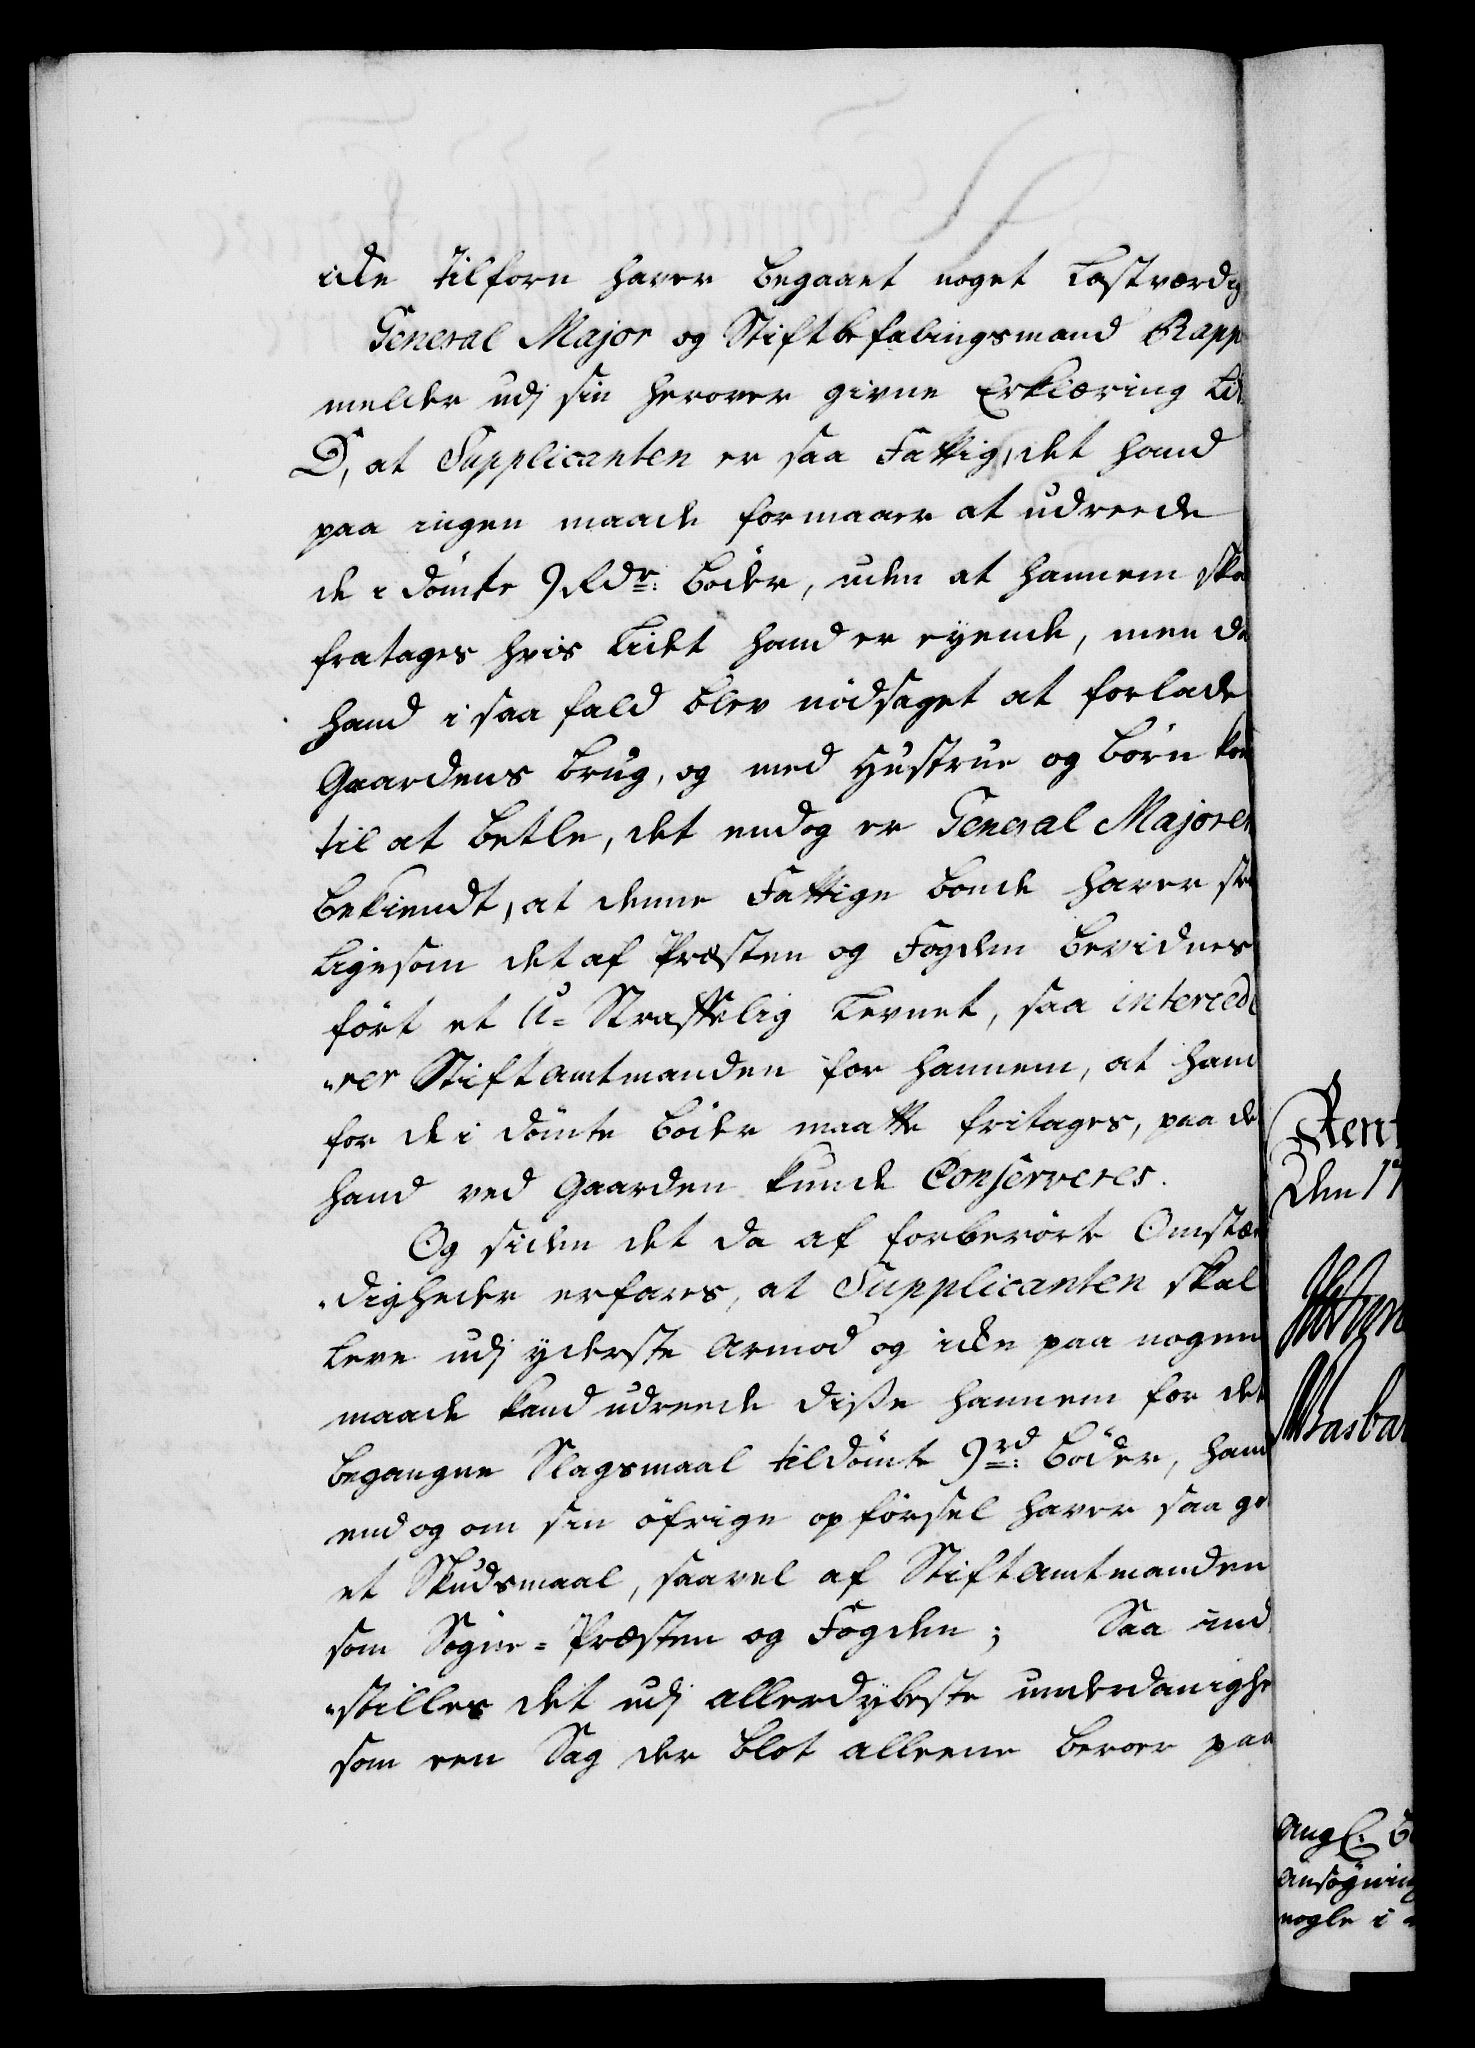 icke tilforn haver begaaet noget Lastværdig
General Major og Stiftbefalingsmand Rapp
melder udj sin herover givne Erklæring Lit:
D, at Supplicanten er saa Fattig, det hand
paa ingen maade formaaer at udreede
de i dömte 9 Rdr: Böder, uden at hannem ska
fratages hvis Lidet hand er eyende, men da
hand i saa fald blev nödsaget at forlade
Gaardens brug, og med Hustrue og börn
til at betle, det endog er General Majoren
bekiendt, at denne Fattige bonde haver
Ligesom det af Præsten og Fogden bevidnes
fört et U-Straffelig Levnet, saa interced
rer Stiftamtmanden for hannem, at hand
for de i dömte böder maatte fritages, paa de
hand ved Gaarden kunde Conserveres.
Og siden det da af forberörte Omstæn
digheder erfares, at Supplicanten skal
Leve udj yderste Armod og icke paa nogen
maade kand udreede disse hannem for det
begangne Slagsmaal tildömte 9 rd: Böder, hand
endog om sin öfrige opförsel haver saa go
et Skudsmaal, saavel af Stiftamtmanden
som Sogne-Præsten og Fogden; Saa ind
stilles det udj allerdybeste underdanighe
som een Sag der blot alleene beroer paa
Rent
Den 17
Ang:
Ansögning
nogle i